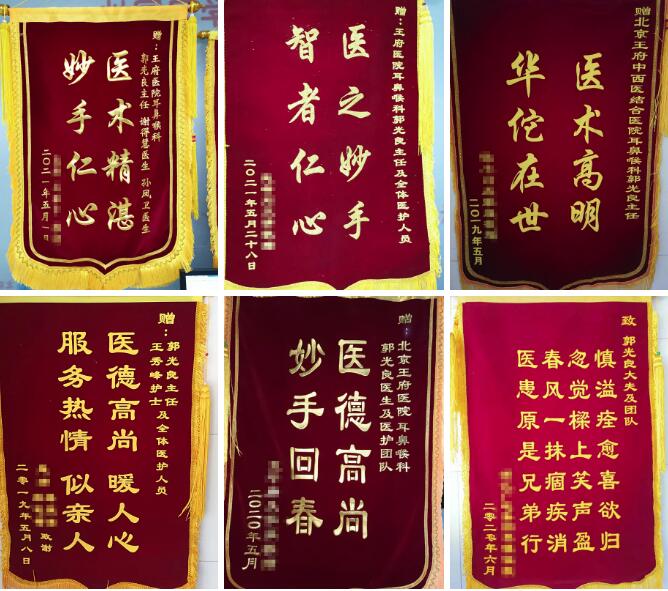 赠：王府医院耳鼻喉科
郭光良主任 谢得慧医生 孙凤卫医生
医术精湛
妙手仁心
二〇二一年五月一日
赠：王府医院耳鼻喉科郭光良主任及全体医护人员
医之妙手
智者仁心
二〇二一年五月二十八日
赠北京王府中西医结合医院耳鼻喉科郭光良主任
医术高明
华佗在世
二〇一九年五月
赠：郭光良主任
王秀峰护士
及全体医护人员
医德高尚 暖人心
服务热情 似亲人
致谢
二零一九年五月八日
赠：北京王府医院 耳鼻喉科
郭光良医生及医护团队
医德高尚
妙手回春
二〇二〇年五月
致 郭光良大夫及团队
慎溢痊愈喜欲归
忽觉樑上笑声盈
春风一抹痼疾消
医患原是兄弟行
二零二零年六月